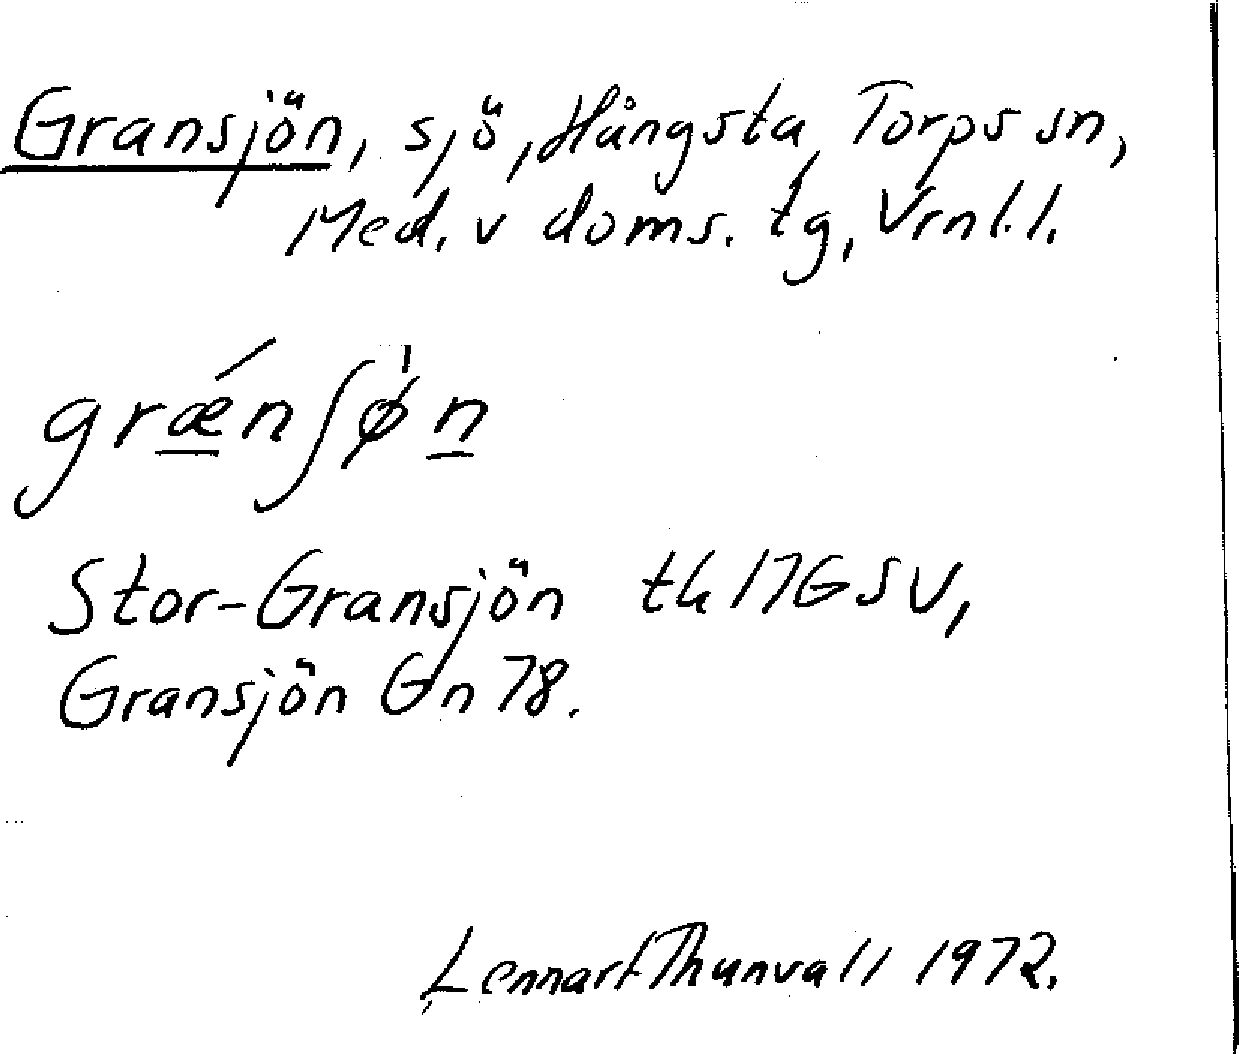 Gransjön, sjö, Hångsta, Torps sn,
Med. v doms. tg, Vrnl. l.
grǽnʃøˈn
Stor-Gransjön th 17G SV,
Gransjön Gn 78.
Lennart Thunvall 1972.